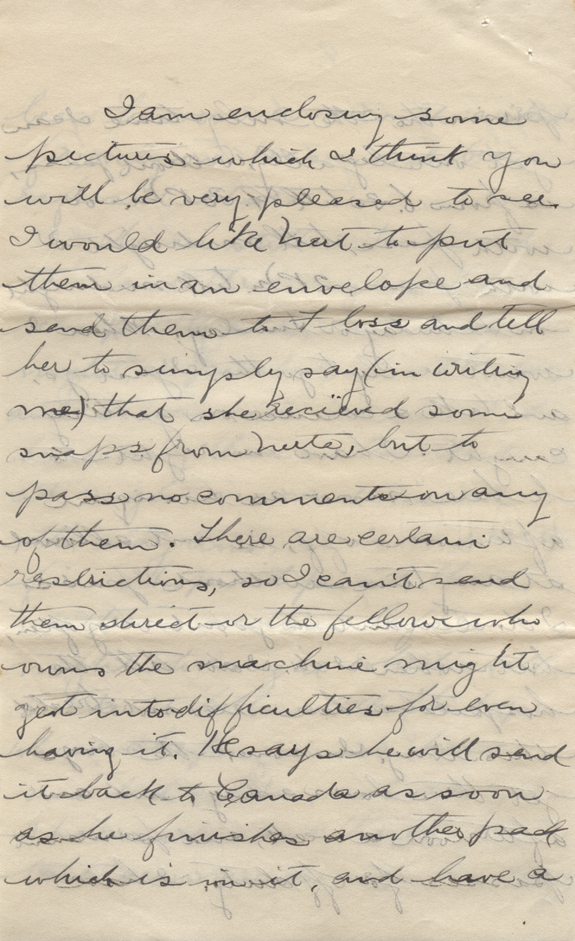 I am enclosing some
pictures which I think you
will be very pleased to see.
I would like Nert to put
them in an envelope and
send them to Floss and tell
her to simply say (in writing
me) that she recieved some
snaps from Nerte, but to
pass no comments on any
of them. There are certain
restrictions, so I can't send
them direct or the fellow who
owns the machine might
get into difficulties for even
having it. He says he will send
it back to Canada as soon
as he finishes another pack
which is in it, and have a